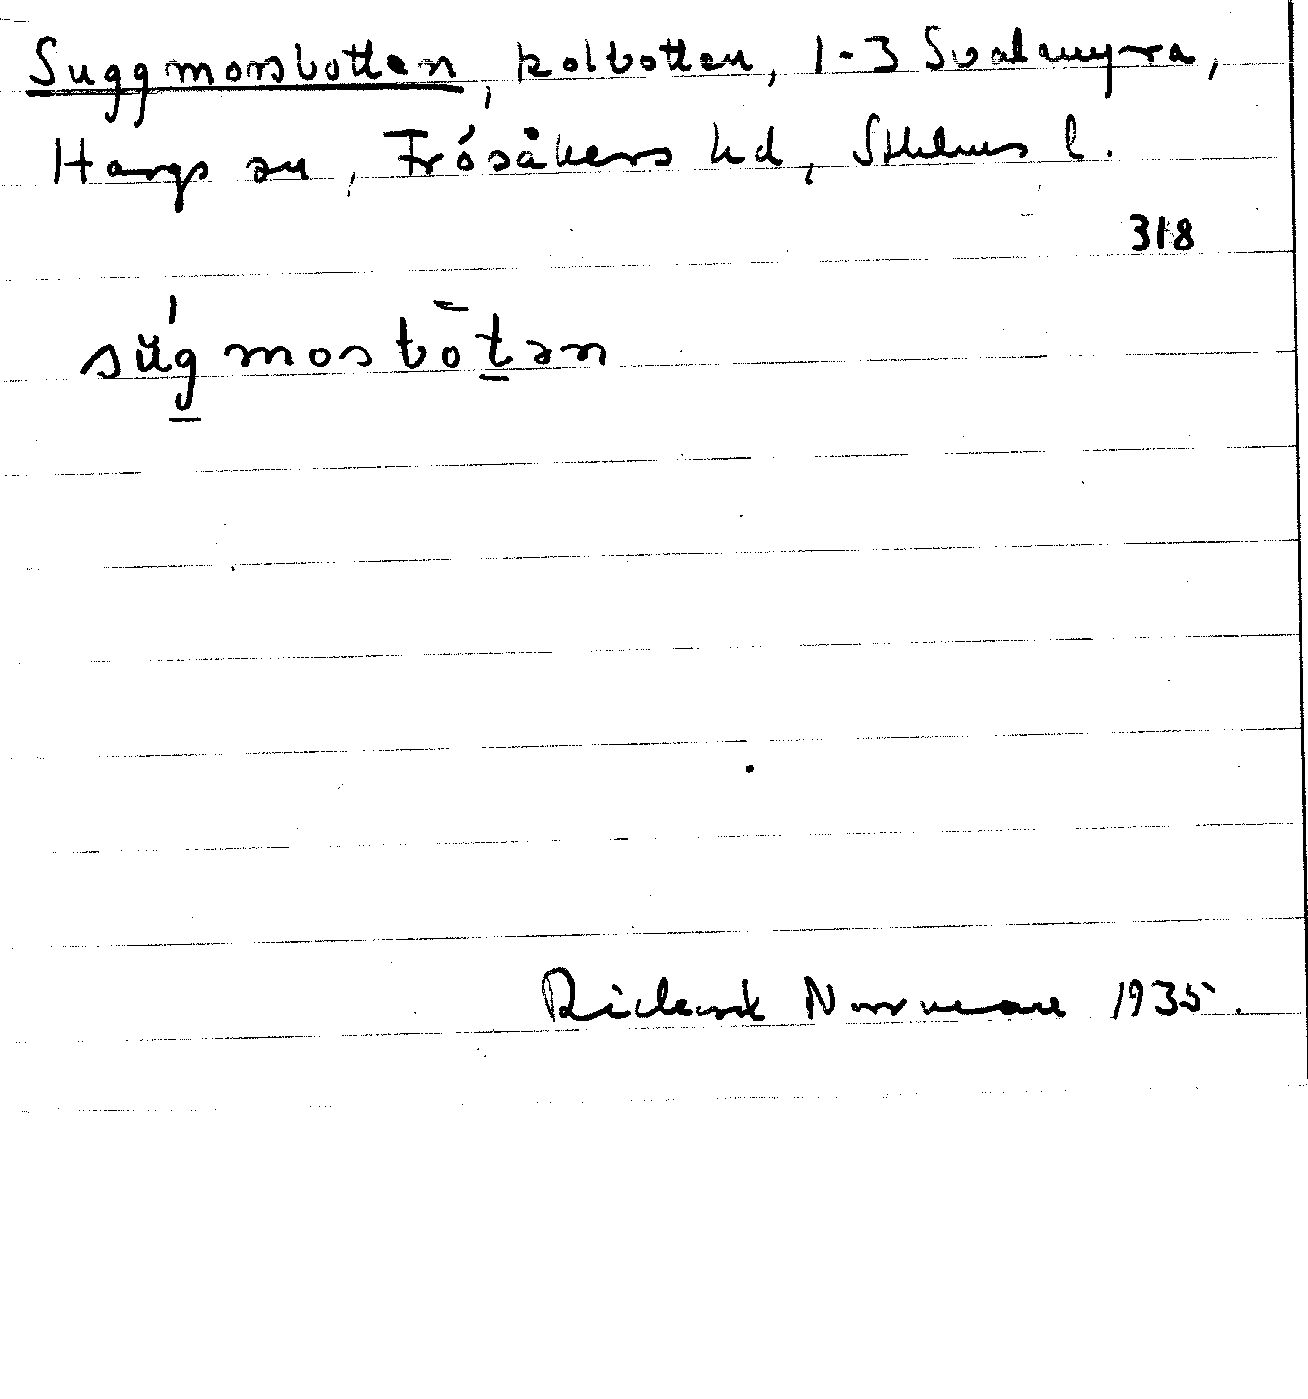 Suggmorsbotten, kolbotten, 1-3 Svalmyra,
Hargs sn, Frösåkers hd, Sthlms l.
318
sug mosbotən
Rickard Norrman 1935.